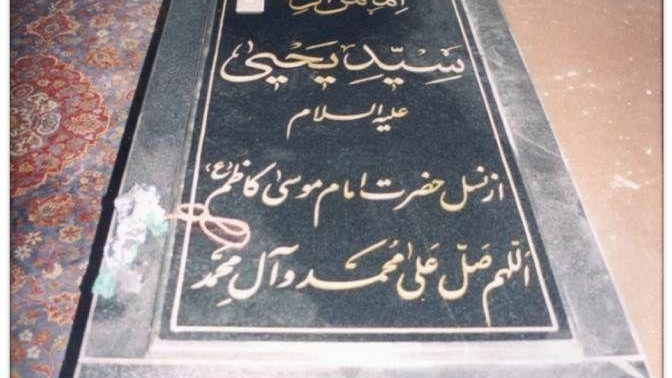 سَیّدِ یَحییٰ
علیه السلام
از نسل حضرت امام موسیٰ کاظم (ع)
اَللّهم صَلّ عَلیٰ مُحمد و آلِ مُحمّد